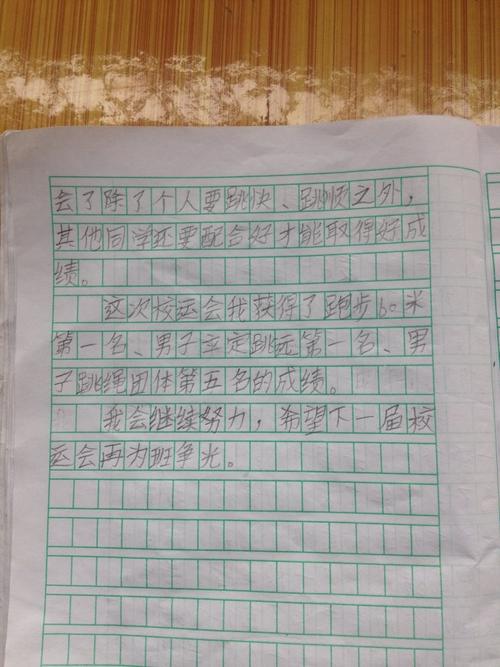 会了除了个人要跳快、跳顺之外，
其他同学还要配合好才能取得好成
绩。
这次校运会我获得了跑步60米
第一名、男子立定跳远第一名、男
子跳绳团体第五名的成绩。
我会继续努力，希望下一届校
运会再为班争光。